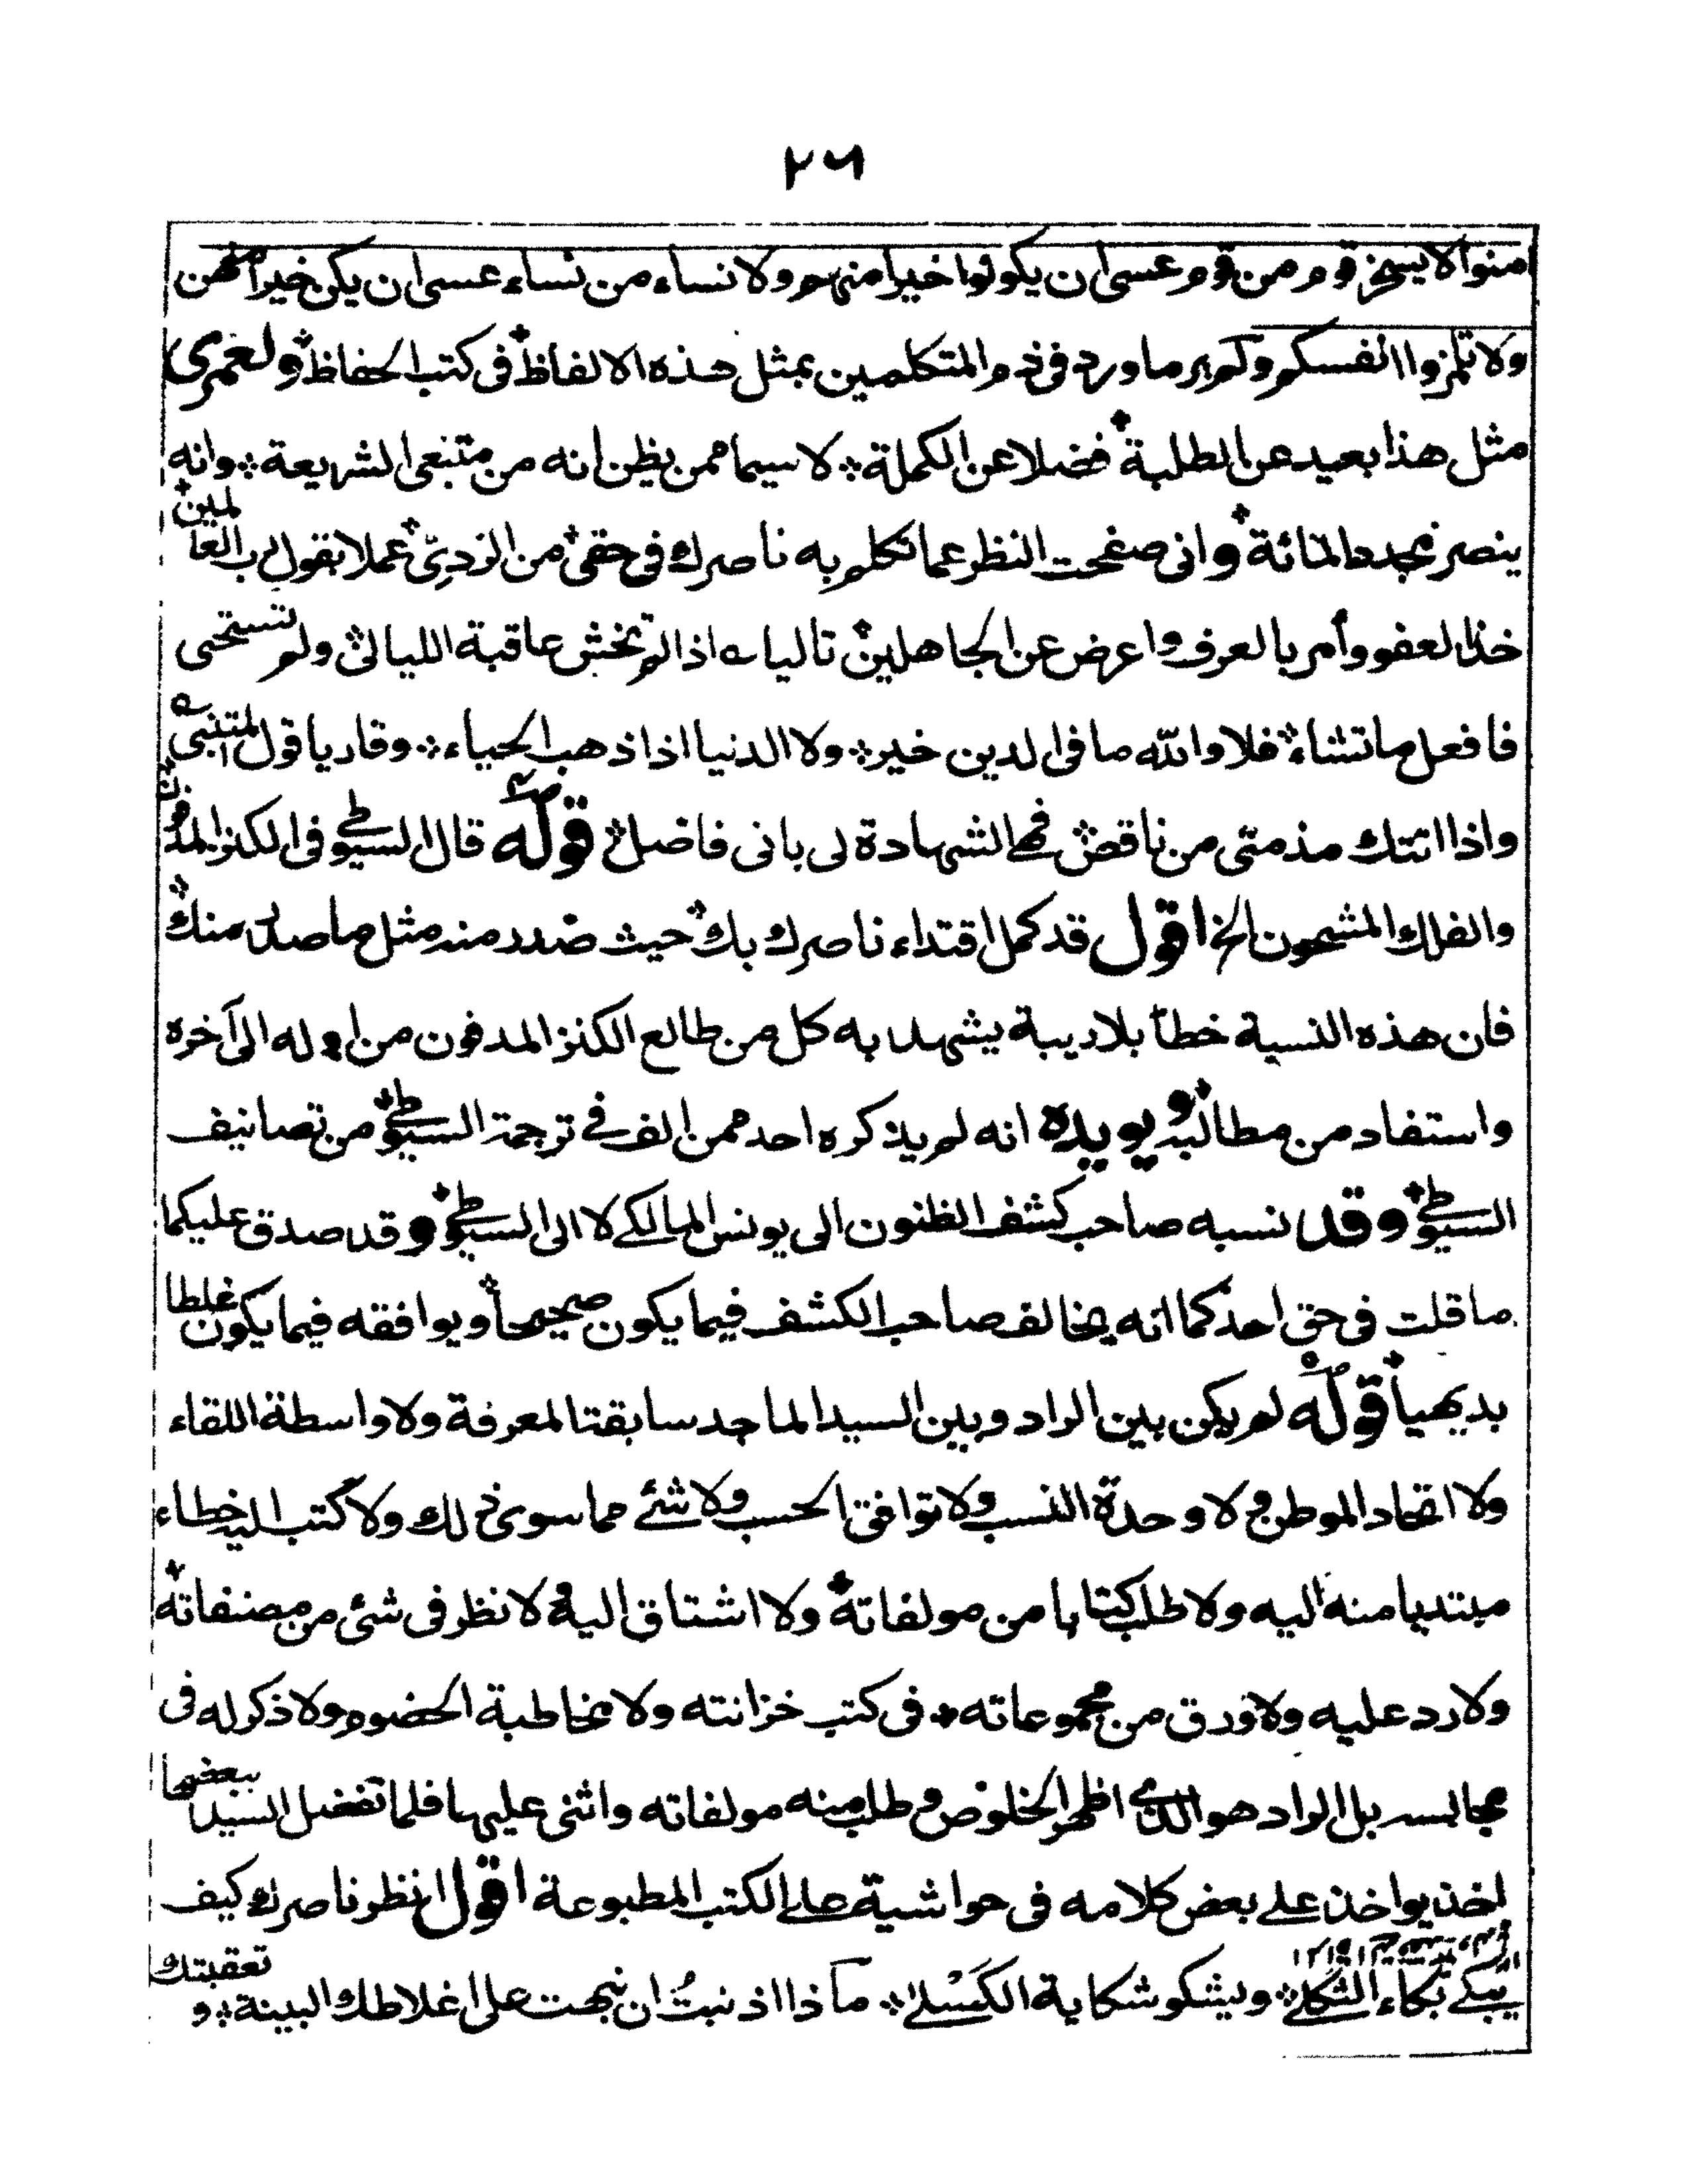 ٢٦
امنوا لا يسخر قوم من قوم عسى ان يكونوا خيرا منهم ولا نساء من نساء عسى ان يكن خيرا منهن
ولا تلمزوا انفسكم ولم ير ما ورد فى ذم المتكلمين بمثل هذه الالفاظ فى كتب الحفاظ ولعمرى
مثل هذا بعيد عن الطلبة فضلا عن الكملة لا سيما ممن يظن انه من متبعى الشريعة وانه
ينصر مجدد المائة وانى صفحت النظر عما تكلم به ناصرك فى حقى من الزدرى عملا بقول رب العالمين
خذ العفو وأمر بالعرف واعرض عن الجاهلين تاليا ؎ اذا لم تخش عاقبة الليالى ولم تستحى
فافعل ما تشاء فلا والله ما فى الدين خير ولا الدنيا اذا ذهب الحياء وقاريا قول المتنبى ؎
واذا اتتك مذمتى من ناقص فهى الشهادة لى بانى فاضل قوله قال السيوطى فى الكنز المدفون
والفلك المشحون الخ اقول قد كمل اقتداء ناصرك بك حيث صدر منه مثل ما صدر منك
فان هذه النسبة خطأ بلا ريبة يشهد به كل من طالع الكنز المدفون من اوله الى آخره
واستفاد من مطالبه ويويده انه لم يذكره احد ممن الف فى ترجمة السيوطى من تصانيف
السيوطى وقد نسبه صاحب كشف الظنون الى يونس المالكى لا الى السيوطى وقد صدق عليكما
ما قلت فى حق احدكما انه يخالف صاحب الكشف فيما يكون صحيحا ويوافقه فيما يكون غلطا
بديهيا قوله لم يكن بين الراد وبين السيد الماجد سابقة المعرفة ولا واسطة اللقاء
ولا اتحاد الموطن ولا وحدة النسب ولا توافق الحسب ولا شئ مما سوى ذلك ولا كتب اليه خطاء
مبتديا منه اليه ولا طلب كتابا من مولفاته ولا اشتاق اليه ولا نظر فى شئ من مصنفاته
ولا رد عليه ولا ورق من مجموعاته فى كتب خزانته ولا مخاطبة الحضوم ولا ذكر له فى
مجالسه بل الراد هو الذى اظهر الخلوص وطلب منه مولفاته واثنى عليها فلما تفضل السيد ببعضها
اخذ يواخذ على بعض كلامه فى حواشية على الكتب المطبوعة اقول انظر ناصرك كيف
يبكى بكاء الثكلى ويشكو شكاية الكسلى ماذا اذنبت ان نبهت على اغلاطك البينة وتعقبتك